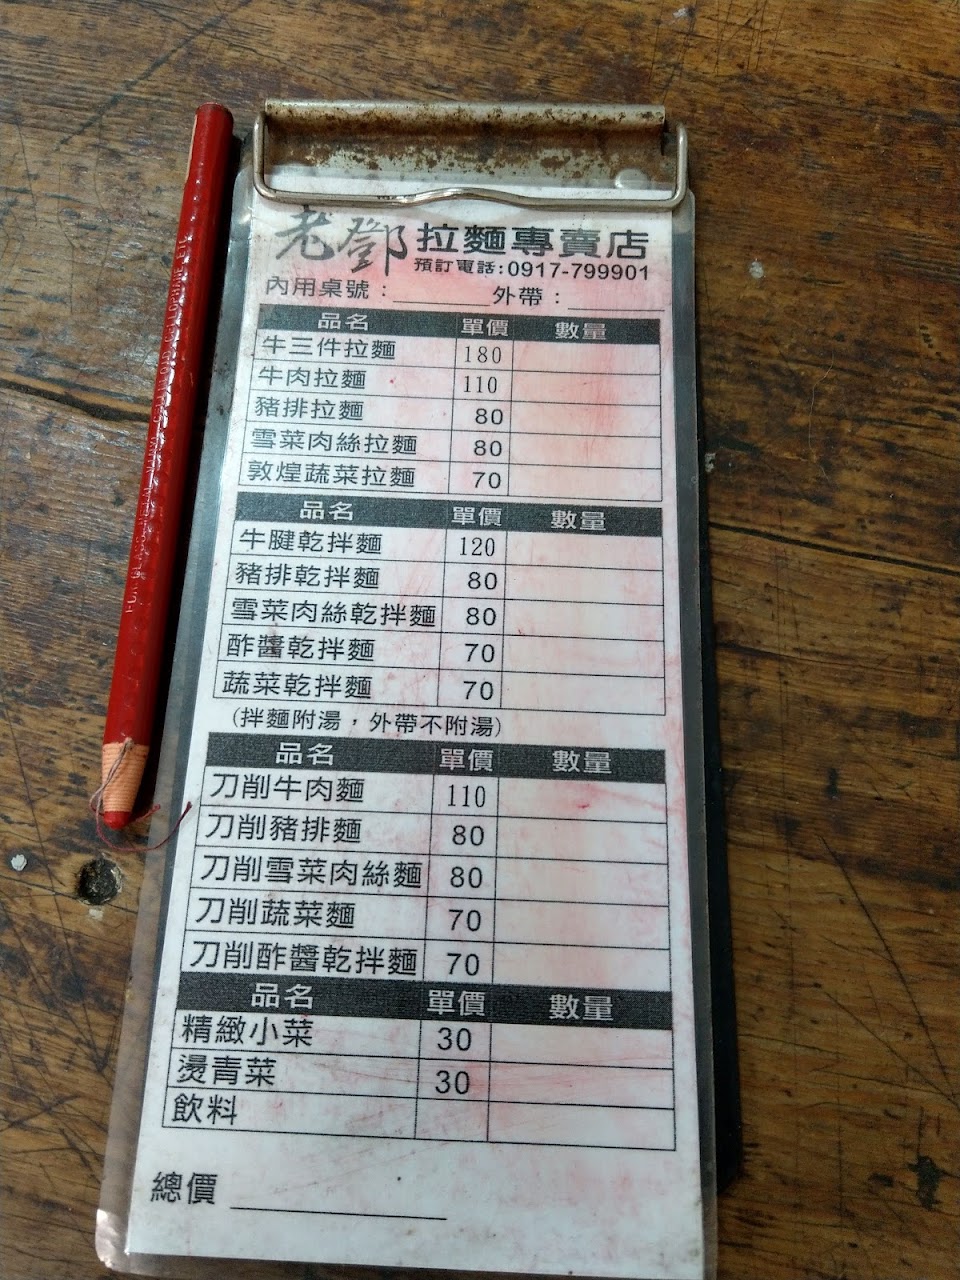 老鄧拉麵專賣店
預訂電話:0917-799901
內用桌號:________外帶:________
品名 單價 數量
牛三件拉麵 180
牛肉拉麵 110
豬排拉麵 80
雪菜肉絲拉麵 80
敦煌蔬菜拉麵 70
品名 單價 數量
牛腱乾拌麵 120
豬排乾拌麵 80
雪菜肉絲乾拌麵 80
酢醬乾拌麵 70
蔬菜乾拌麵 70
(拌麵附湯,外帶不附湯)
品名 單價 數量
刀削牛肉麵 110
刀削豬排麵 80
刀削雪菜肉絲麵 80
刀削蔬菜麵 70
刀削酢醬乾拌麵 70
品名 單價 數量
精緻小菜 30
燙青菜 30
飲料
總價 ____________